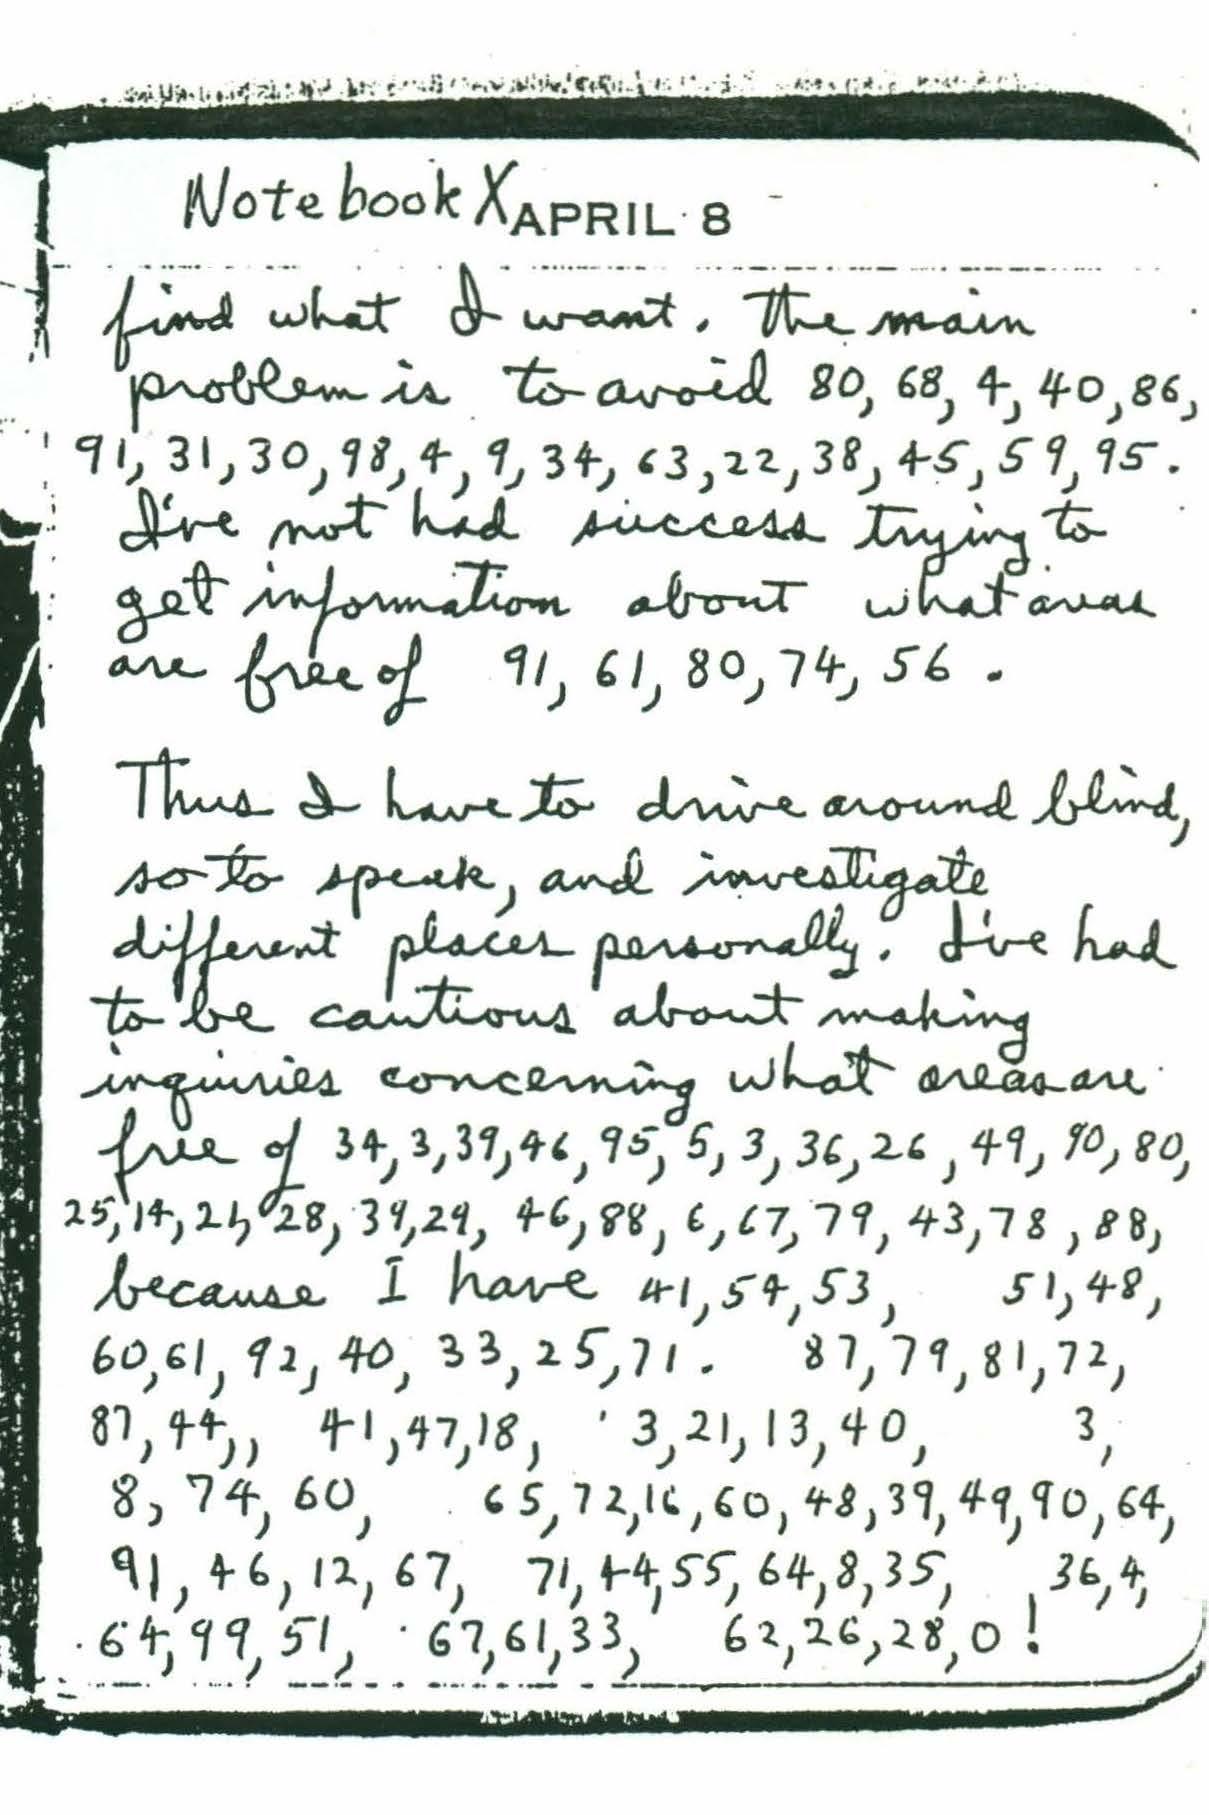 Notebook X APRIL 8
find what I want. The main
problem is to avoid 80, 68, 4, 40, 86,
91, 31, 30, 98, 4, 9, 34, 63, 22, 38, 45, 59, 95.
I've not had success trying to
get information about what areas
are free of 91, 61, 80, 74, 56.
Thus I have to drive around blind,
so to speak, and investigate
different places personally. I've had
to be cautious about making
inquiries concerning what areas are
free of 34, 3, 39, 46, 95, 5, 3, 36, 26, 49, 90, 80,
25, 14, 21, 28, 39, 29, 46, 88, 6, 67, 79, 43, 78, 88,
because I have 41, 54, 53, 51, 48,
60, 61, 92, 40, 33, 25, 71. 87, 79, 81, 72,
87, 44,, 41, 47, 18, 3, 21, 13, 40, 3,
8, 74, 60, 65, 72, 16, 60, 48, 39, 49, 90, 64,
91, 46, 12, 67, 71, 44, 55, 64, 8, 35, 36, 4,
64, 99, 51, 67, 61, 33, 62, 26, 28, 0!